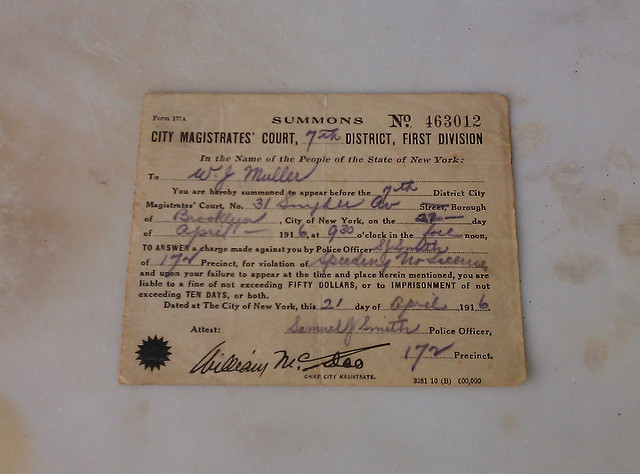 Form 177A SUMMONS No 463012
CITY MAGISTRATES' COURT, 7th DISTRICT, FIRST DIVISION
In the Name of the People of the State of New York:
To W. J. Muller
You are hereby summoned to appear before the 7th District City
Magistrates' Court, No. 31 Snyder Av Street, Borough
of Brooklyn, City of New York, on the day
of April 1916, at 9 30 o'clock in the fore noon,
TO ANSWER a charge made against you by Police Officer S J Smith
of 172 Precinct, for violation of Speeding No License
and upon your failure to appear at the time and place herein mentioned, you are
liable to a fine of not exceeding FIFTY DOLLARS, or to IMPRISONMENT of not
exceeding TEN DAYS, or both.
Dated at The City of New York, this 21 day of April 1916.
Attest: Samuel J Smith Police Officer,
William Mc 172 Precinct.
CHIEF CITY MAGISTRATE.
3281 10 (B) 600,000